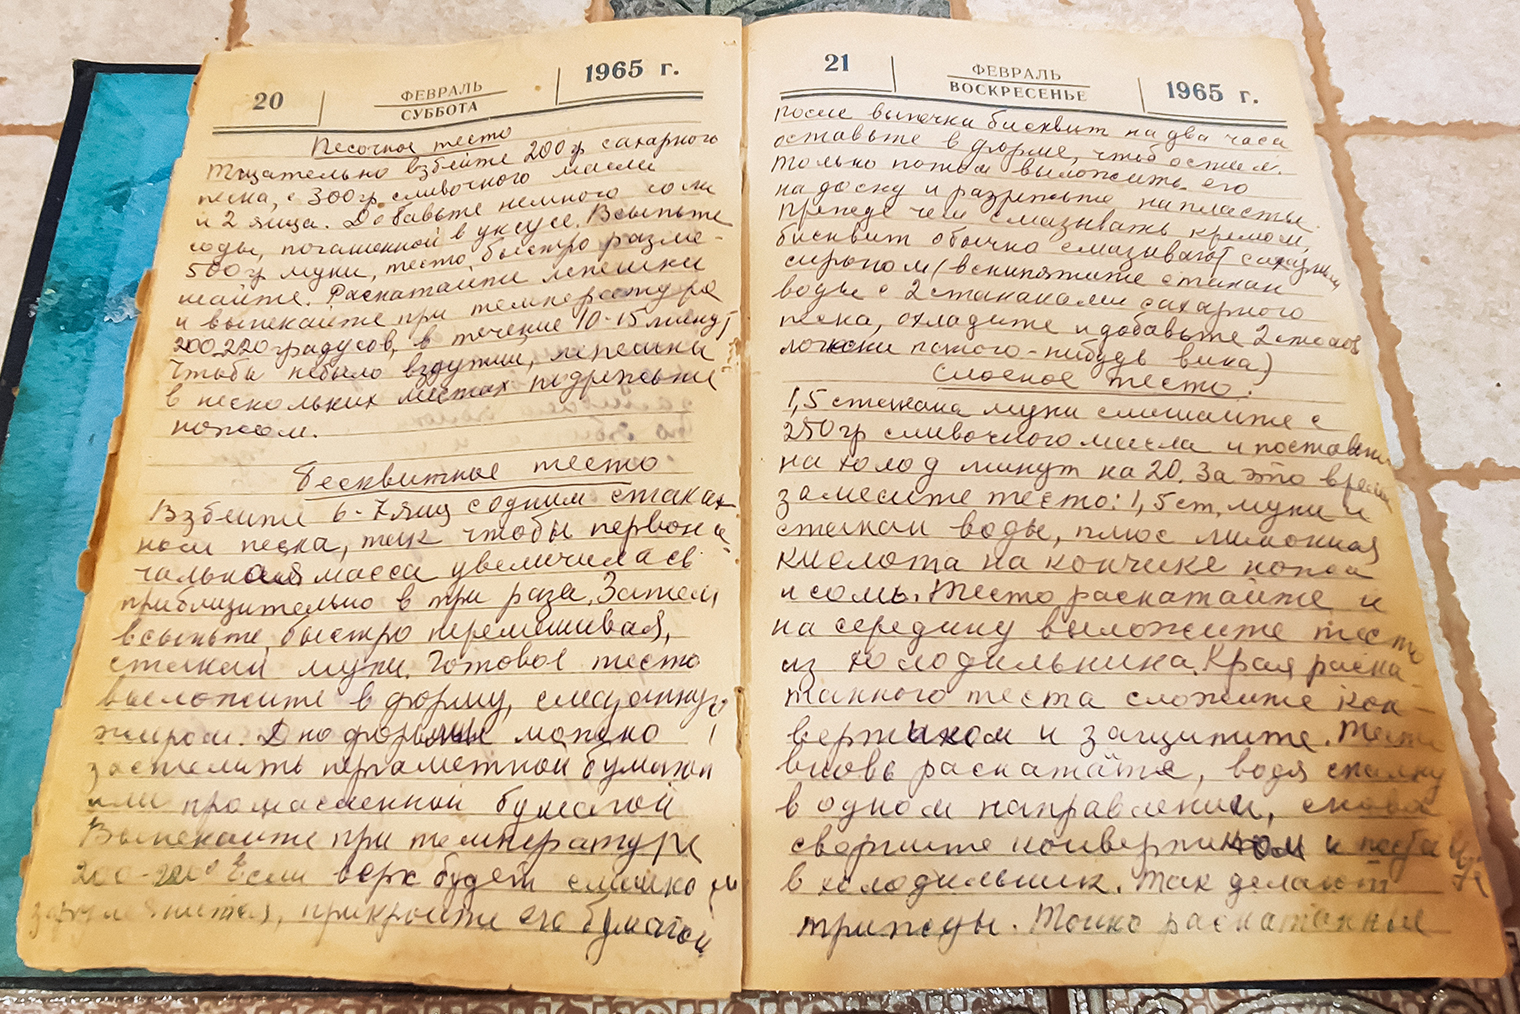 20
ФЕВРАЛЬ
СУББОТА
1965 г.
Песочное тесто
Тщательно взбейте 200 гр сахарного
песка, с 300 гр. сливочного масла
и 2 яйца. Добавьте немного соли
соды, погашенной в уксусе. Всыпьте
500 гр муки, тесто быстро разме-
шайте. Раскатайте лепешки
и выпекайте при температуре
200-220 градусов, в течение 10-15 минут
Чтобы небыло вздутий, лепешки
в нескольких местах подрежьте
ножом.
Бисквитное тесто
Взбейте 6-7 яиц с одним стакан
ном песка, так чтобы первона-
чальная масса увеличилась
приблизительно в три раза. Затем
всыпьте, быстро перемешивая,
стакан муки. Готовое тесто
выложите в форму, смазанную
жиром. Дно формы можно
застелить пергаметной бумагой
или промасленной бумагой
Выпекайте при температуре
200-220° Если верх будет слишко
, прикройте его бумагой
21
ФЕВРАЛЬ
ВОСКРЕСЕНЬЕ
1965 г.
После выпечки бисквит на два часа
оставьте в форме, чтоб остыл.
Только потом выложить его
на доску и разрежьте на пласты.
Прежде чем смазывать кремом,
бисквит обычно смазывают сахарным
сиропом (вскипятите стакан
воды с 2 стаканами сахарного
песка, охладите и добавьте 2 столов
ложки какого-нибудь вина)
Слоеное тесто.
1,5 стакана муки смешайте с
250 гр сливочного масла и поставьте
на холод минут на 20. За это время
замесите тесто: 1,5 ст. муки и
стакан воды, плюс лимонная
кислота на кончике ножа
и соль. Тесто раскатайте и
на середину выложите тесто
из холодильника. Края раска-
танного теста сложите кон-
вертиком и защипите. Тесто
вновь раскатайте, водя скалку
в одном направлении, снова
сверните конвертиком и
в холодильник. Так делают
трижды. Тонко раскатанные